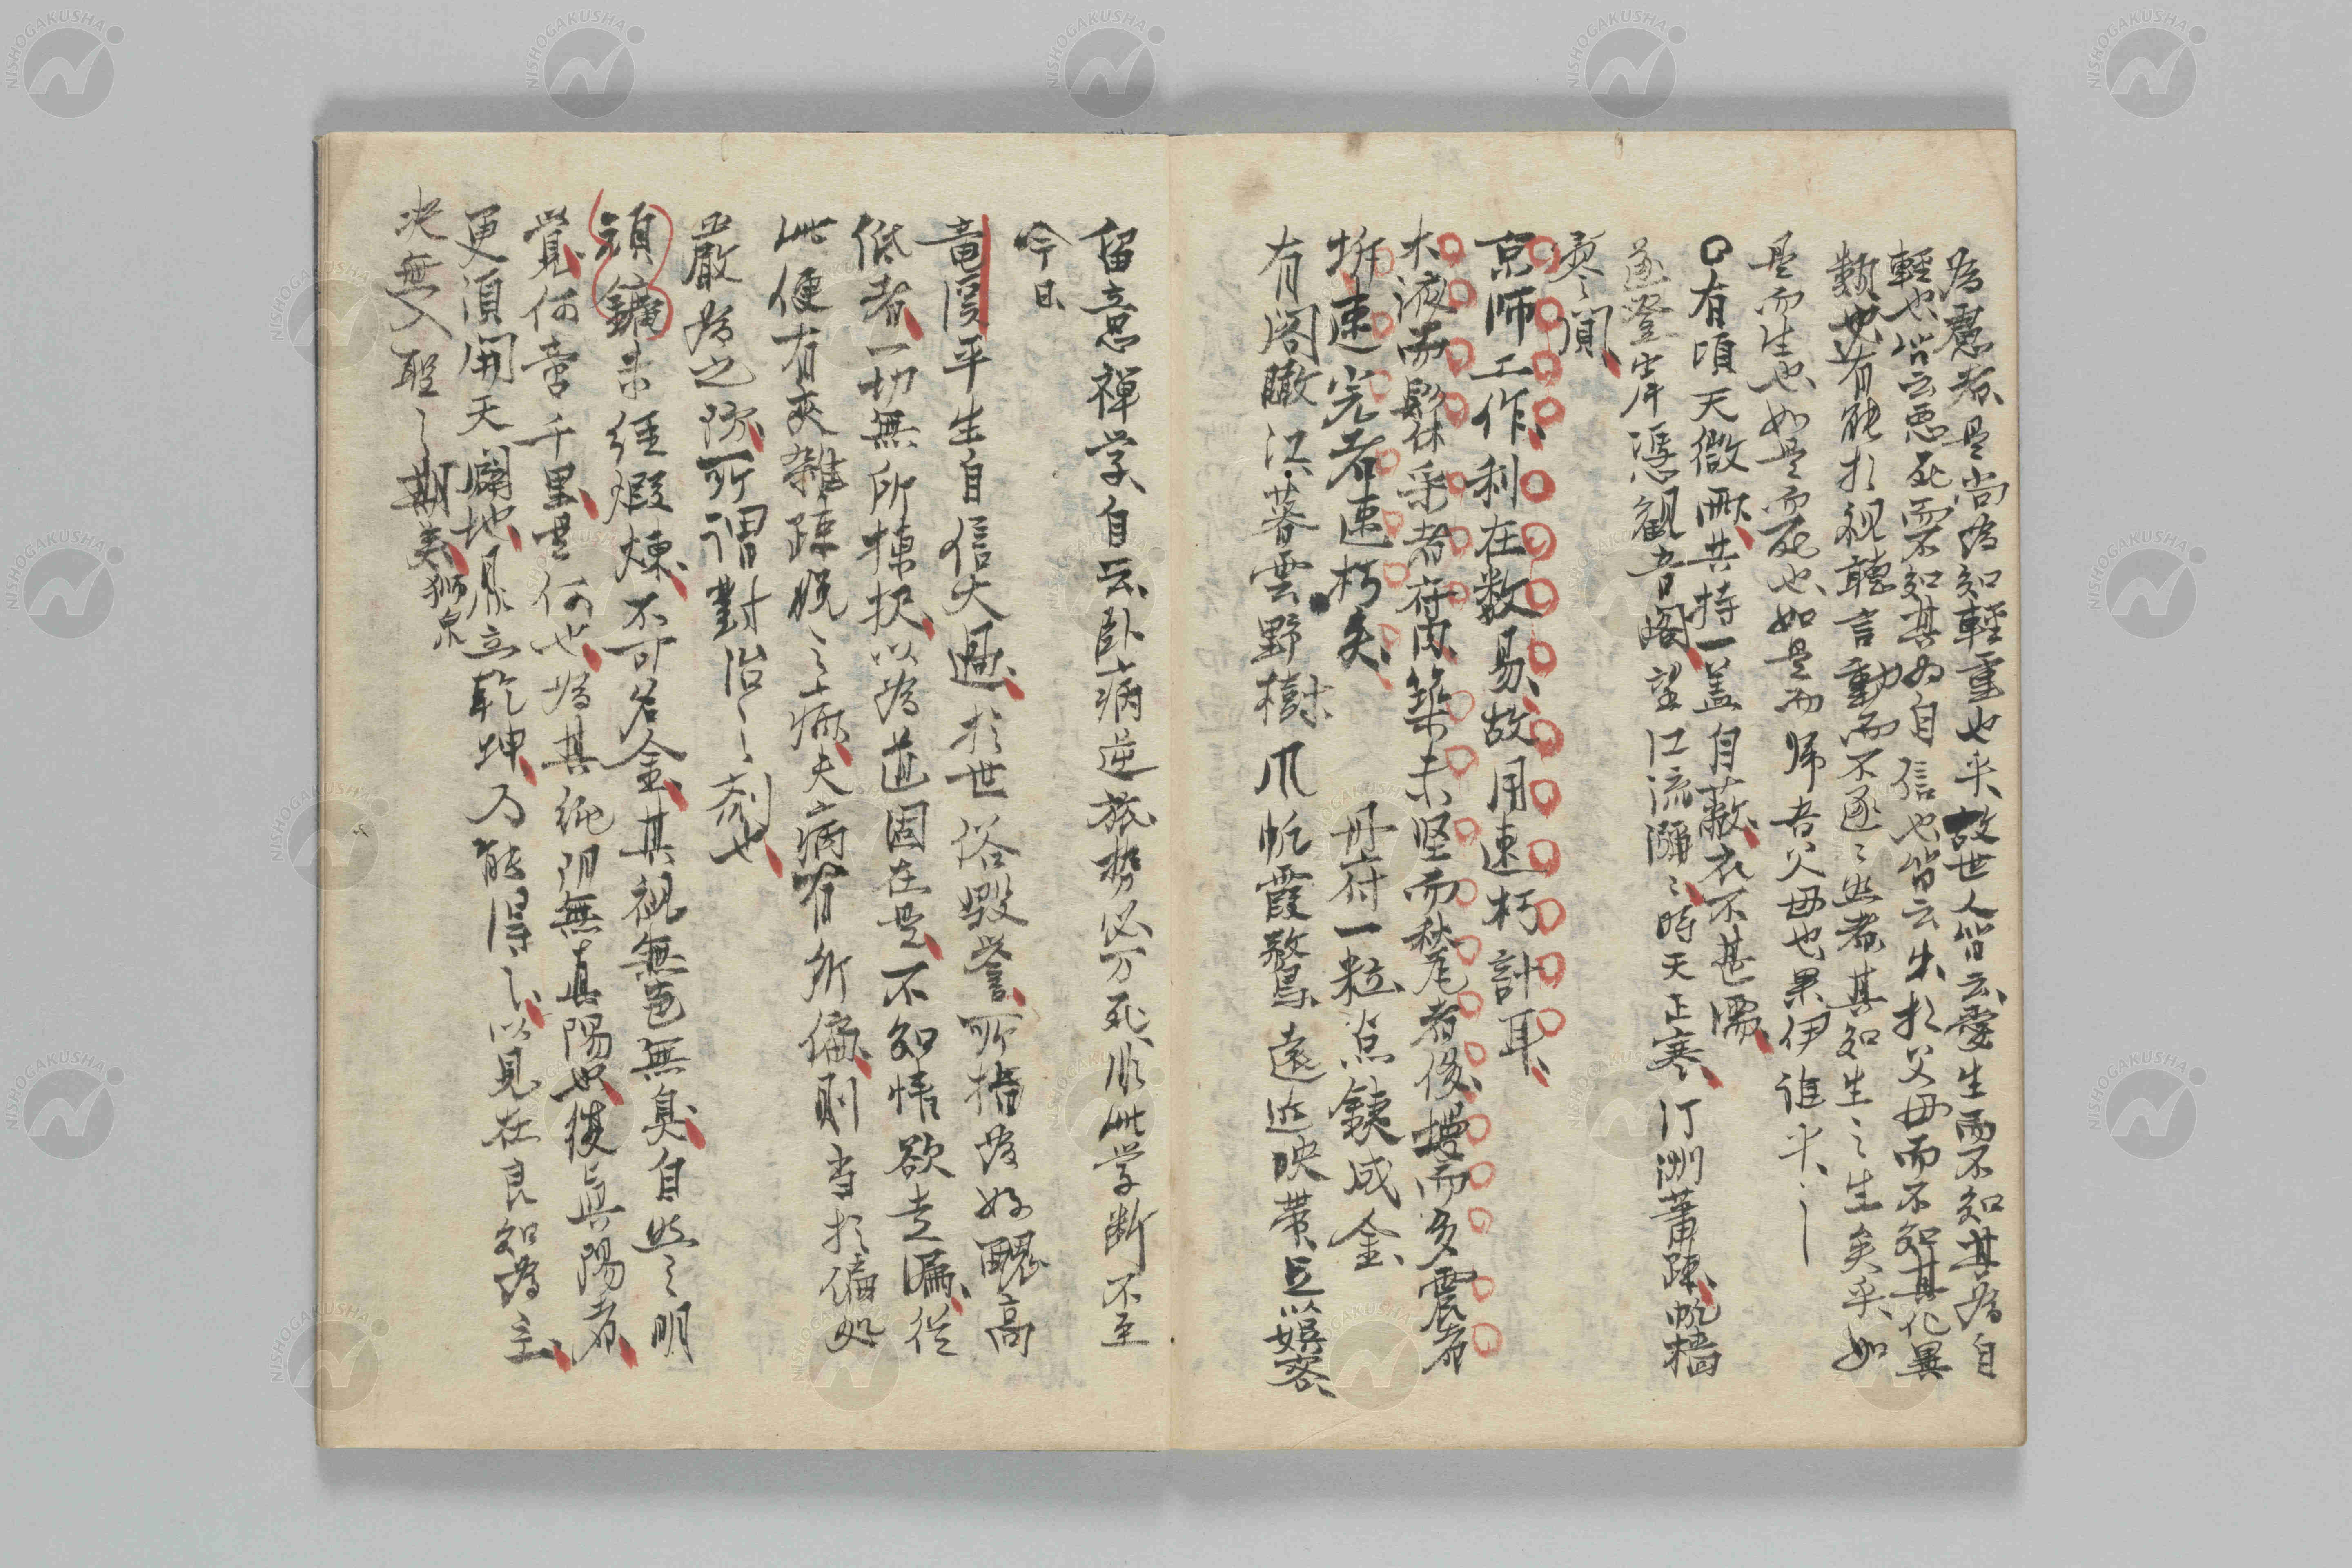 為慮者是尚為知輕重也乎故世人皆云愛生而不知其為自
輕也皆云惡死而不知其為自信也皆云生於父母而不知其化異
類也有能於視聽言動而不逐〻然者其知生〻生矣乎如
是而生也如是而死也如是而帰吾父母也果伊誰乎〻
有頃天微雨共持一盖自蔽衣不甚濡
遂登岸憑観音閣望江流瀰〻時天正寒汀洲蕭疎帆檣
寥闃
京师工作利在数易故用速朽計耳
木液而髹休采者符内築未堅而秋尾者後墁而多震者
拆速完者速朽矣　丹府一粒点鉄成金
有閣瞰江暮雲野樹爪帆霞鶩遠近映帯足以娯客
留意禅学自云卧病逆旅势必万死非此学断不至
今日
竜溪平生自信大過於世俗毀誉所指為好醜高
低者一切無所揀択以為道固在是不知情欲走漏從
此便有夾雜疎脱〻病夫病有所偏則当於偏処
严嚴為之隊所謂對治〻剤也
頑鑛未経煆煉不可名金其視無邑無臭自然〻明
覚何啻千里是何也為其純阴無真陽也復真陽者
更湏開天闢地鼎立乾坤乃能得〻以見在良知為主
决無入聖〻期矣狮泉